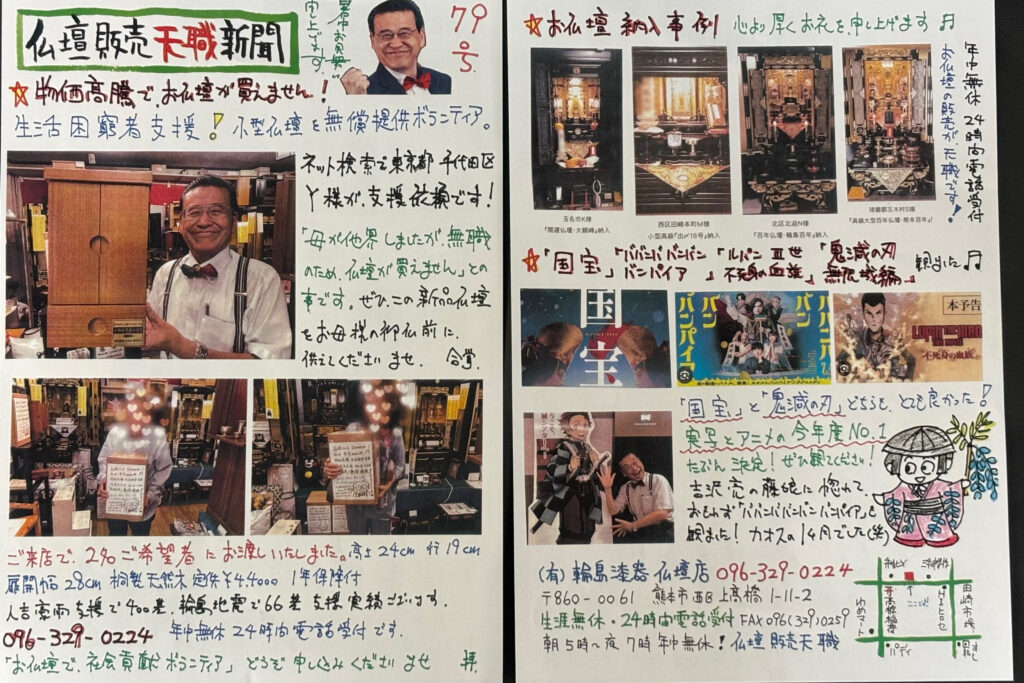 仏壇販売天職新聞
暑中お見舞い
申し上げます。
79号
☆物価高騰でお仏壇が買えません!
生活困窮者支援!小型仏壇を無償提供ボランティア。
ネット検索で東京都千代田区
Y様が支援依頼です!
「母が他界しましたが、無職
のため、仏壇が買えません」との
事です。ぜひ、この新品仏壇
をお母様の御仏前に、
供えてくださいませ。合掌。
ご来店で、2名ご希望者にお渡しいたしました。高さ24cm 行19cm
扉開幅28cm 桐製天然木 定価¥44000 1年保障付
人吉豪雨支援で400基、輪島地震で66基支援実績ございます。
096-329-0224 年中無休24時間電話受付です。
「お仏壇で、社会貢献ボランティア」どうぞ申し込みくださいませ 拝、
☆お仏壇納入事例 心より厚くお礼を申し上げます♬
年中無休24時間電話受付
お仏壇の販売が天職です!
玉名市K様
『開運仏壇・大観峰』納入
西区田崎本町M様
小型高級『出〆18号』納入
北区北迫N様
『百年仏壇・輪島百年』納入
球磨郡五木村S様
『高級大型百年仏壇・熊本百年』
☆「国宝」「ババンババンバン
バンパイア」「ルパン三世
不死身の血族」「鬼滅の刃
無限城編」観ました♬
国宝
ババンババン
バンバンパイア
本予告
LUPIN THE IIIRD
不死身の血族
「国宝」と「鬼滅の刃」どちらも、とても良かった!
実写とアニメの今年度No.1
たぶん決定!ぜひ観てください!
吉沢亮の藤娘に惚れて、
おもわず「ババンババンバンバンパイア」も
観ました!カオスの1ヶ月でした(笑)
(有)輪島漆器仏壇店 096-329-0224
〒860-0061 熊本市西区上高橋1-11-2
生涯無休・24時間電話受付 FAX096(329)0259
朝5時~夜7時年中無休!仏壇販売天職
ゆめマート
田崎市場
ここだよ